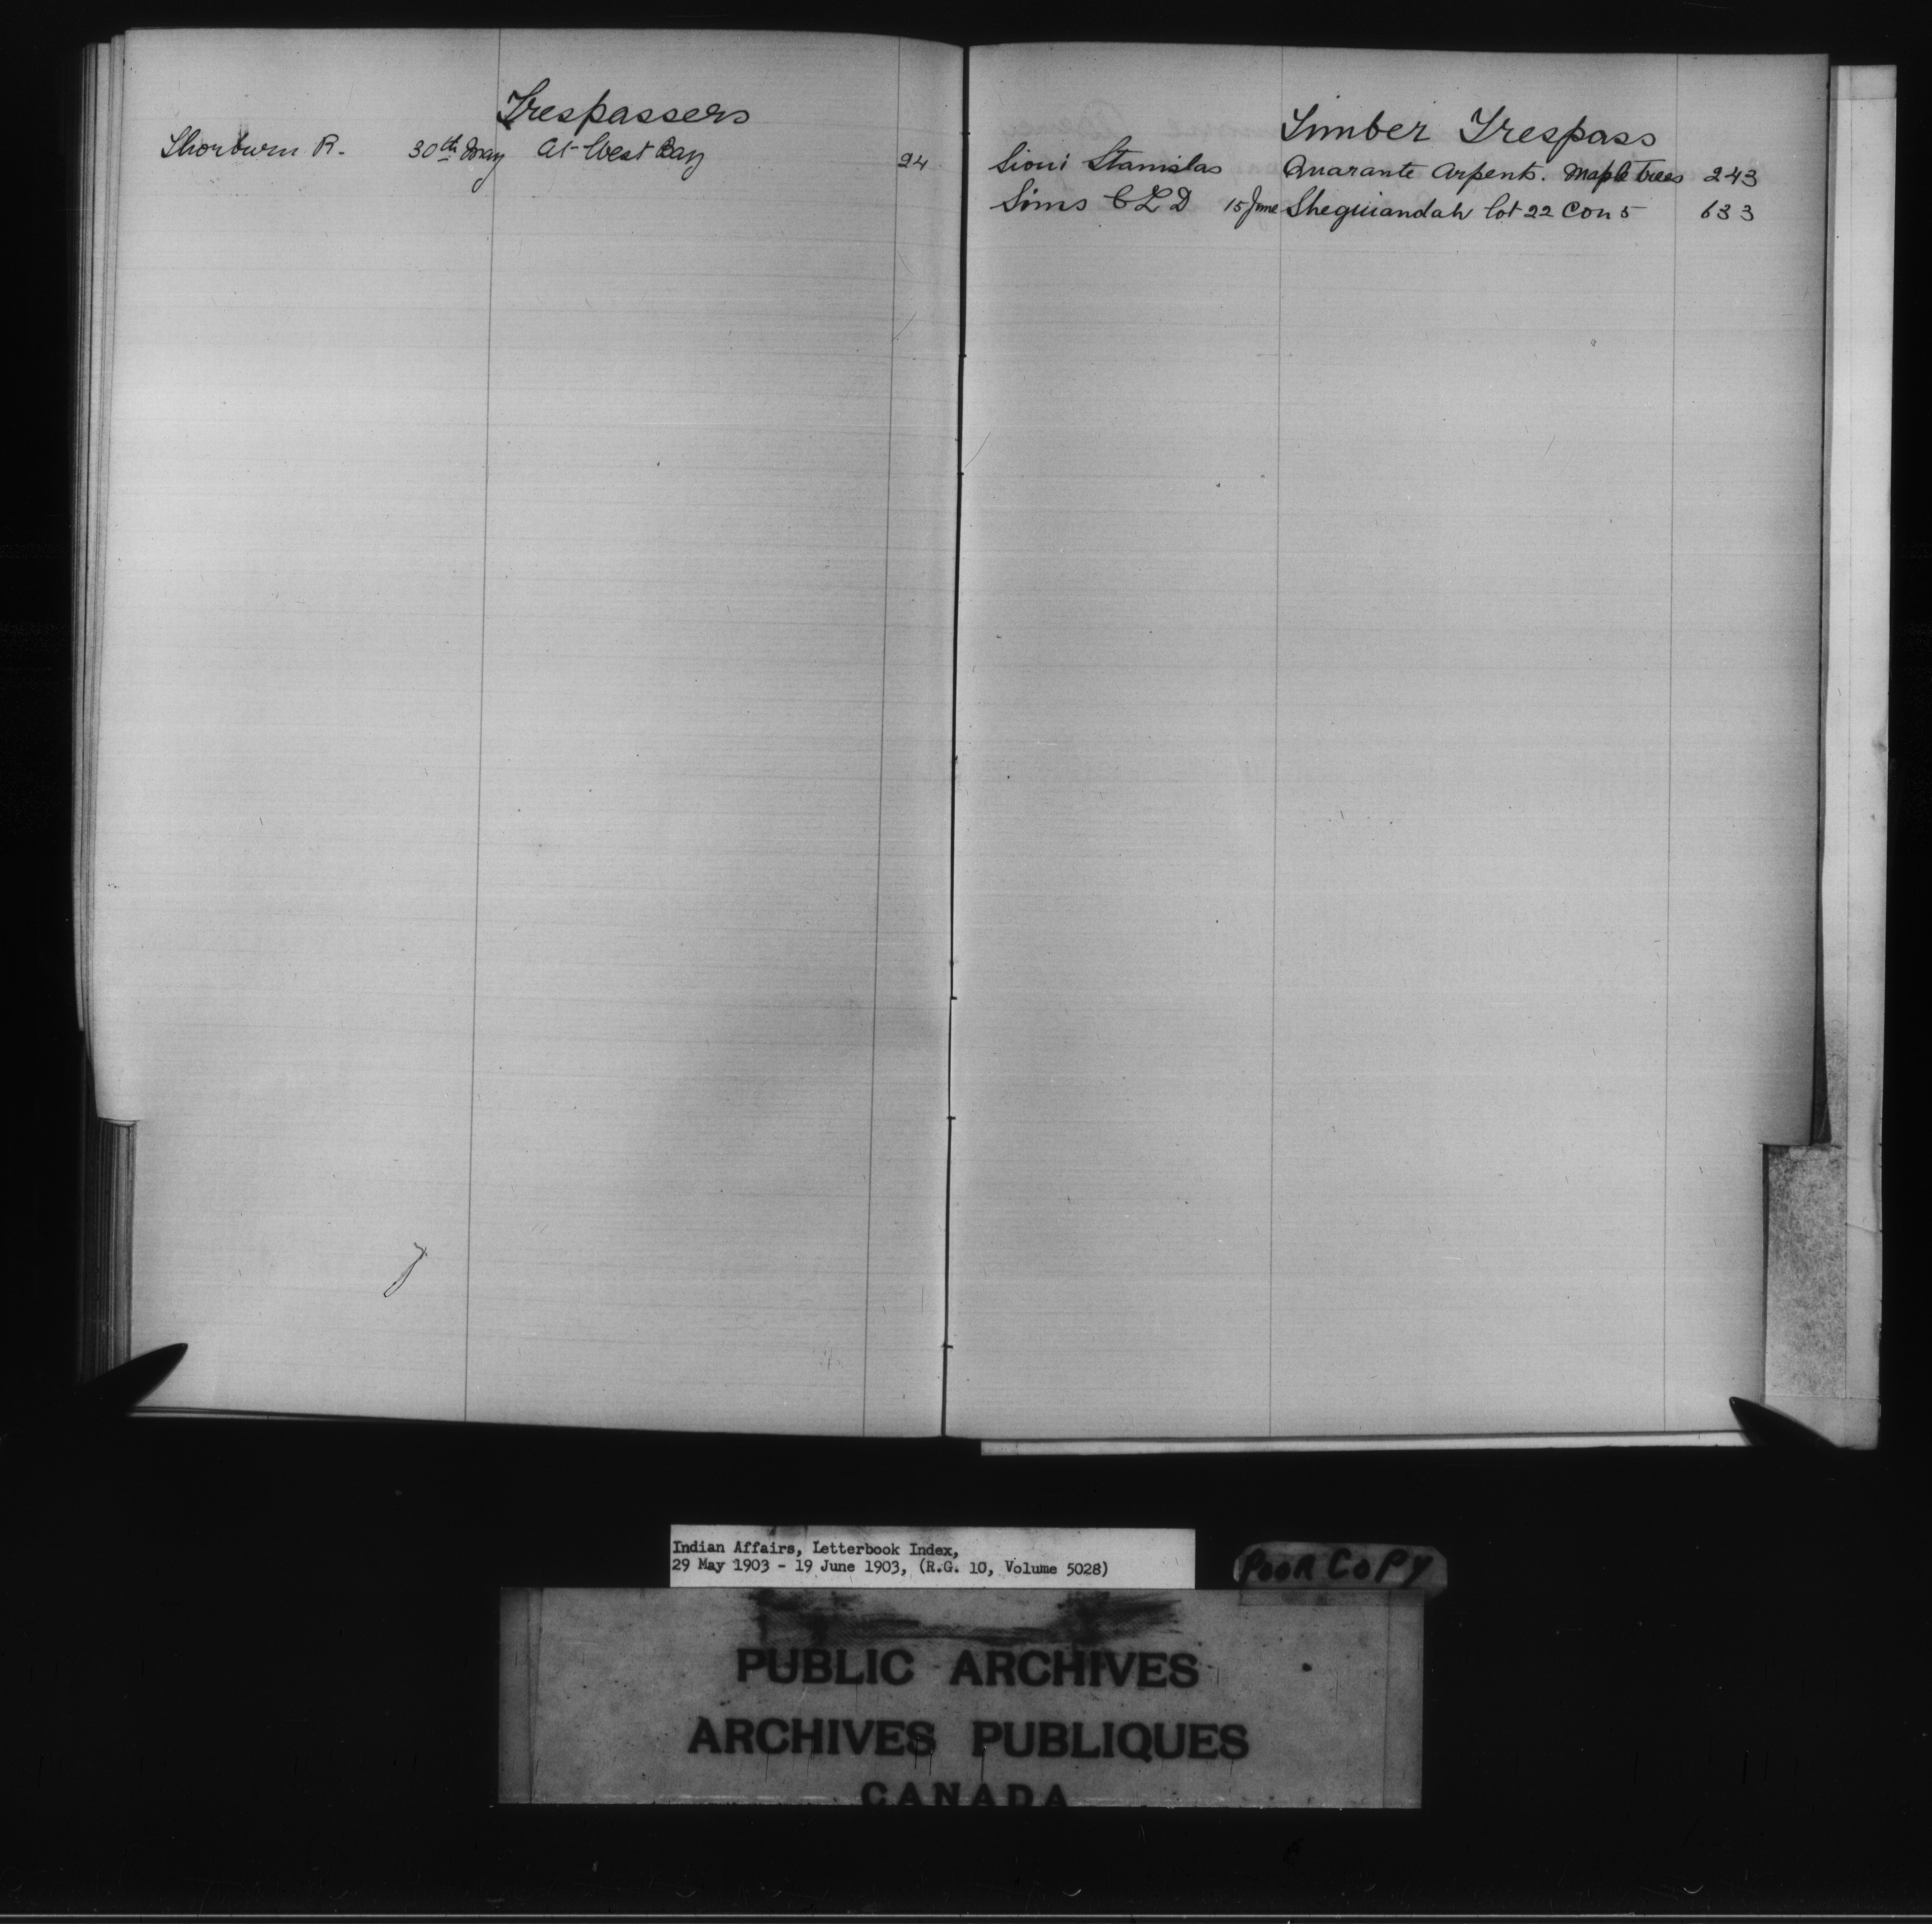 Trespassers
Thorburn R. 30th May At West Bay 24
Timber Trespass
Sioui Stanislas Quarante Arpents. Maple Trees 243
Sims C L D 15 June Sheguiandah lot 22 Con 5 633
Indian Affairs, Letterbook Index,
29 May 1903 - 19 June 1903, (R.G. 10, Volume 5028)
POOR COPY
PUBLIC ARCHIVES
ARCHIVES PUBLIQUES
CANADA